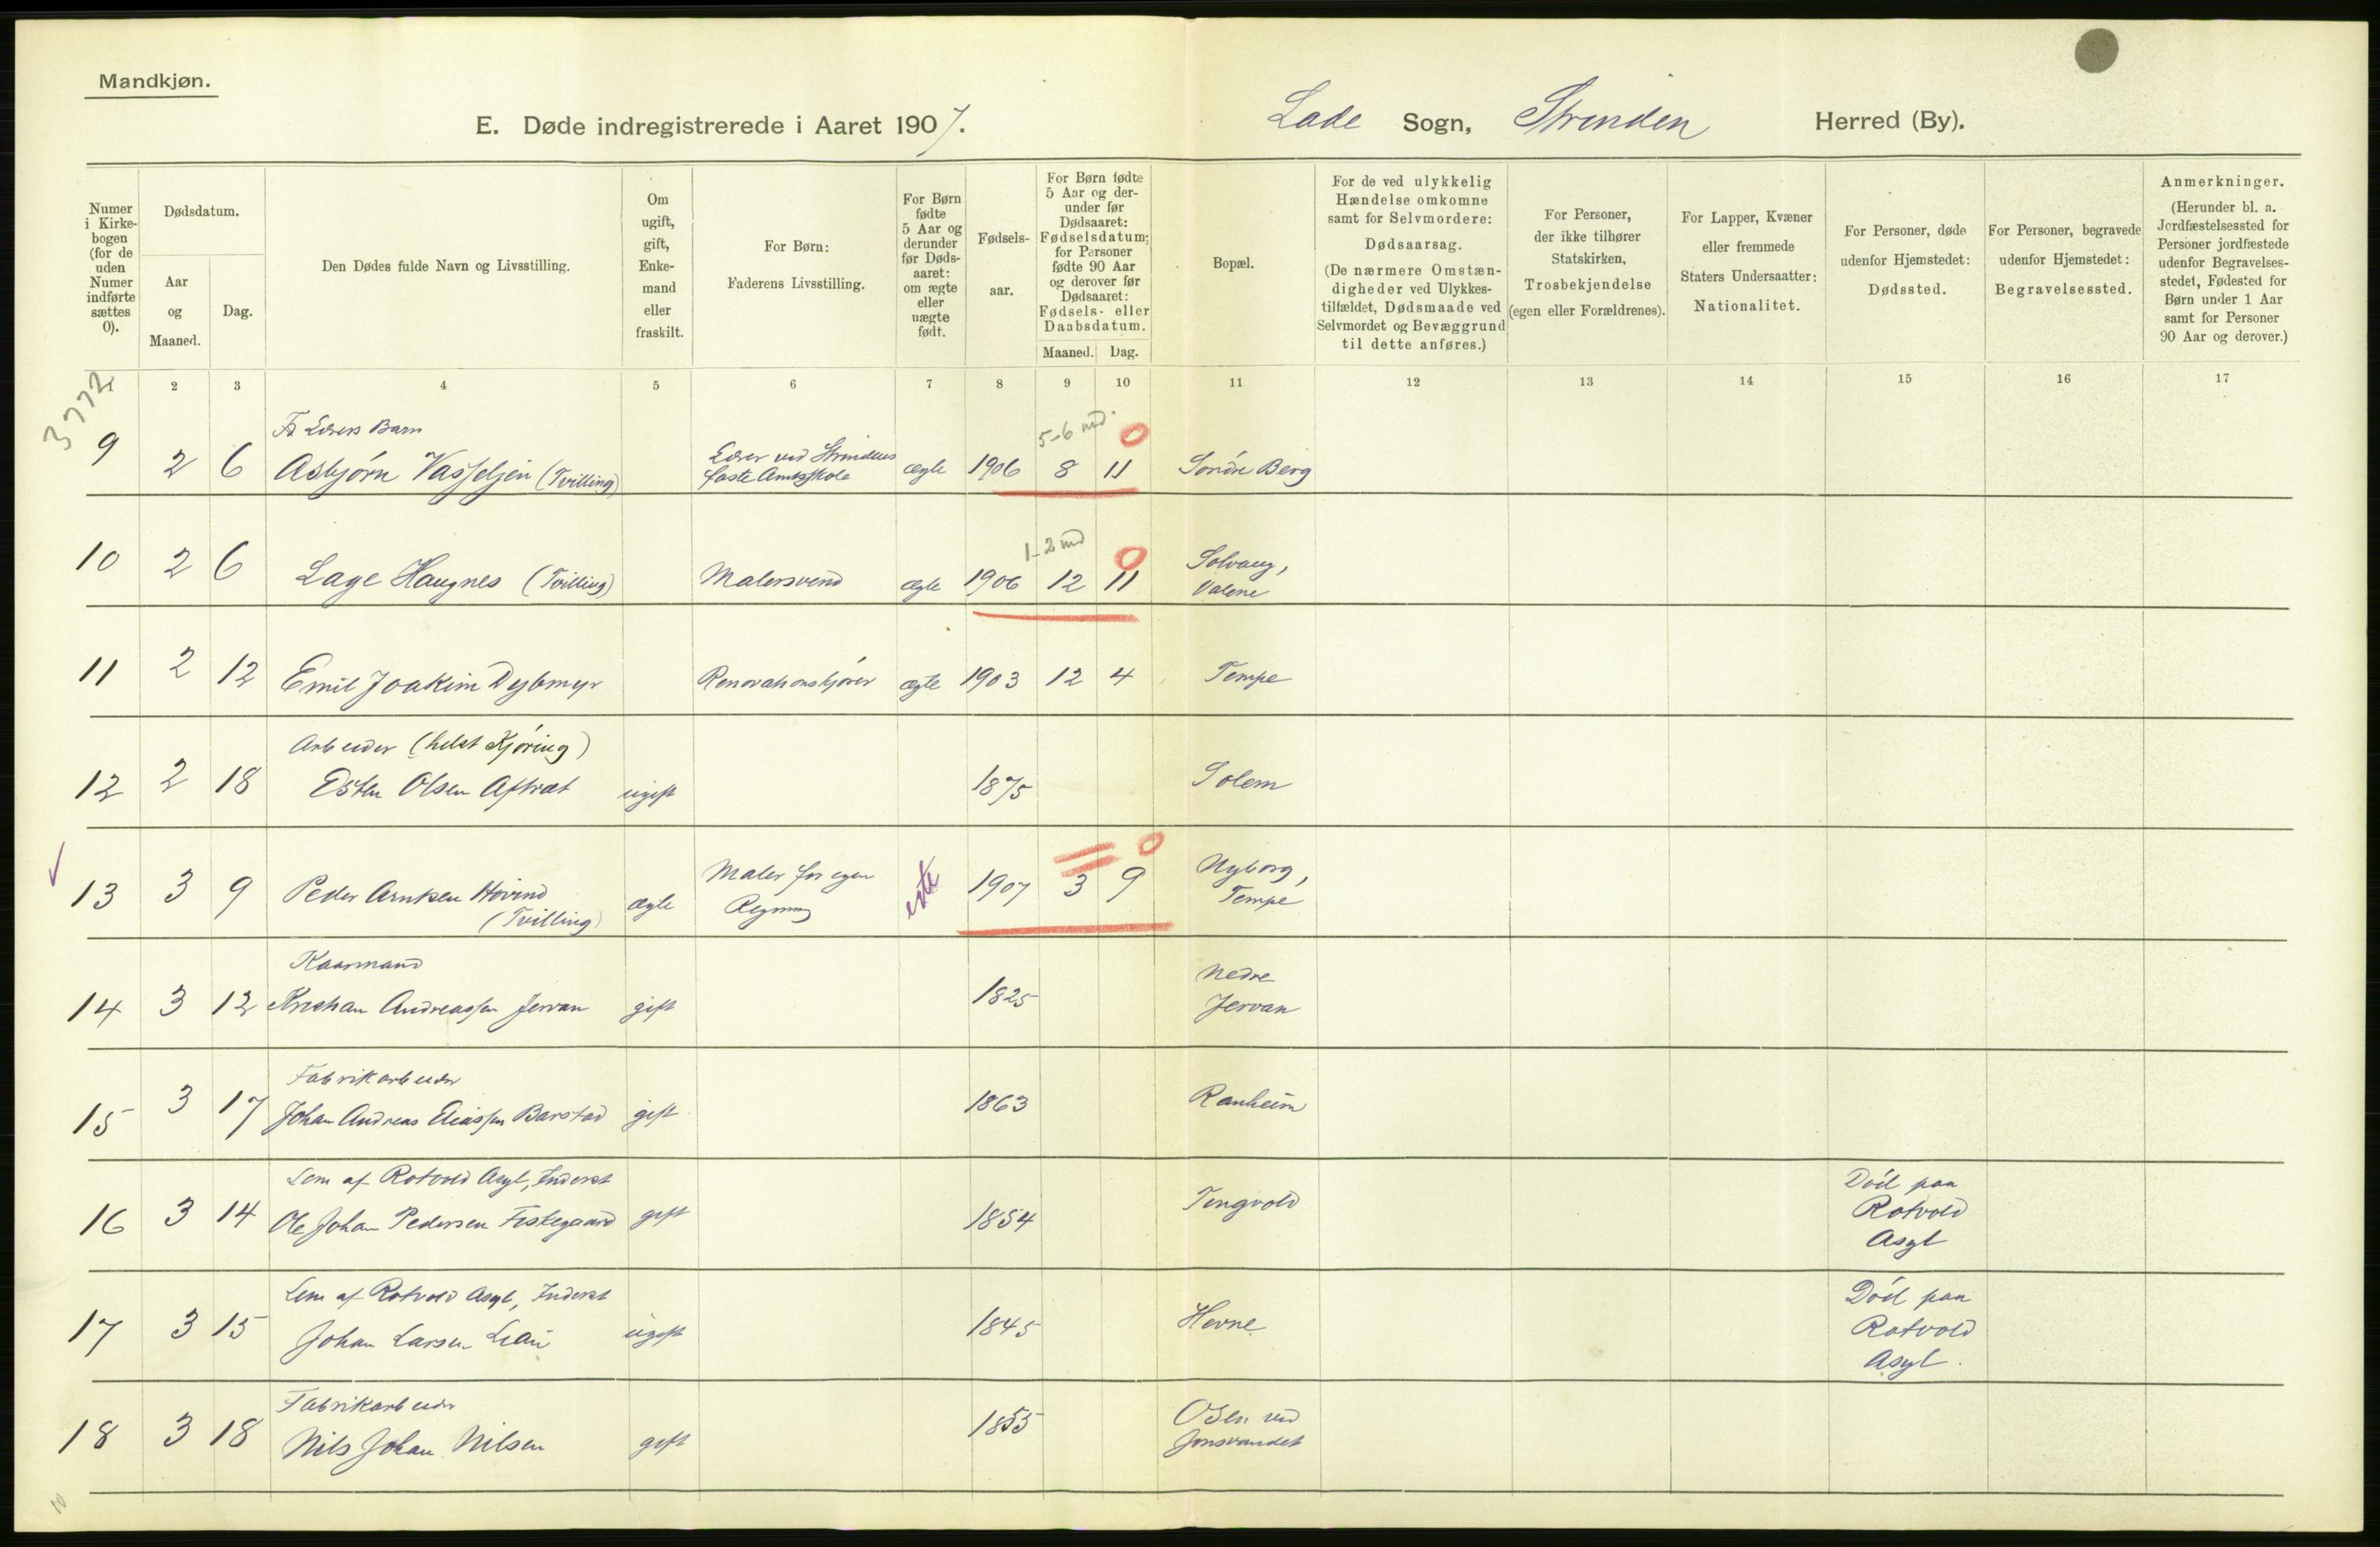 Mandkjøn.
E. Døde indregistrerede i Aaret 1907. Lade Sogn, Strinden Herred (By).
Numer i Kirkebogen (for de uden Numer indførte sættes 0).
Dødsdatum.
Aar og Maaned.
Dag.
Den Dødes fulde Navn og Livsstilling.
Om ugift, gift, Enkemand eller fraskilt.
For Børn: Faderens Livsstilling.
For Børn fødte 5 Aar og derunder før Dødsaaret: om ægte eller uægte født.
Fødselsaar.
For Børn fødte 5 Aar og derunder før Dødsaaret: Fødselsdatum; for Personer fødte 90 Aar og derover før Dødsaaret: Fødsels- eller Daabsdatum.
Maaned. Dag.
Bopæl.
For de ved ulykkelig Hændelse omkomne samt for Selvmordere: Dødsaarsag. (De nærmere Omstændigheder ved Ulykkestilfældet, Dødsmaade ved Selvmordet og Bevæggrund til dette anføres.)
For Personer, der ikke tilhører Statskirken, Trosbekjendelse (egen eller Forældrenes).
For Lapper, Kvæner eller fremmede Staters Undersaatter: Nationalitet.
For Personer, døde udenfor Hjemstedet: Dødssted.
For Personer, begravede udenfor Hjemstedet: Begravelsessted.
Anmerkninger. (Herunder bl. a. Jordfæstelsessted for Personer jordfæstede udenfor Begravelsesstedet, Fødested for Børn under 1 Aar samt for Personer 90 Aar og derover.)
3772
2 3 4 5 6 7 8 9 10 11 12 13 14 15 16 17
Lærers Barn
5-6 md. 0
9 2 6 Asbjørn Vasseljen (Tvilling) Lærer ved Strindens faste Amtsskole ægte 1906 8 11 Søndre Berg
1-2 md 0
10 2 6 Lage Haugnes (Tvilling) Malersvend ægte 1906 12 11 Solvang, Valene
11 2 12 Emil Joakim Dybmyr Renovationskjører ægte 1903 12 4 Tempe
Arbeider (helst Kjøring)
12 2 18 Esten Olsen Aftret ugift 1875 Solem
0
13 3 9 Peder Arntsen Hovind (Tvilling) ægte Maler for egen Regning ægte 1907 3 9 Nyborg, Tempe
Kaarmand
14 3 12 Kristian Andreassen Jervan gift 1825 Nedre Jervan
Fabrikarbeider
15 3 17 Johan Andreas Eliassen Barstad gift 1863 Ranheim
Lem af Rotvold Asyl, Inderst
16 3 14 Ole Johan Pedersen Fiskegaard gift 1854 Tingvold Død paa Rotvold Asyl
Lem af Rotvold Asyl, Inderst
17 3 15 Johan Larsen Lian ugift 1845 Hevne Død paa Rotvold Asyl.
Fabrikarbeider
18 3 18 Nils Johan Nilsen gift 1855 Osen ved Jonsvandet
10